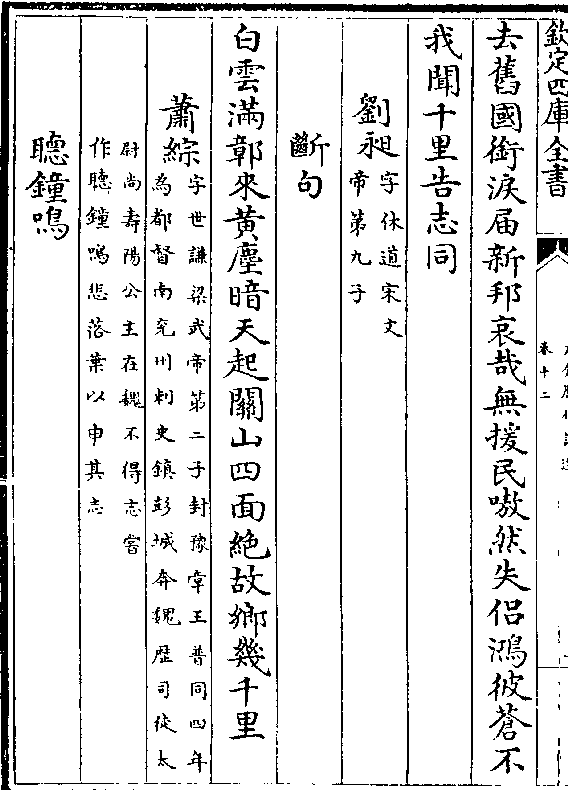 欽定四庫全書
卷十二
去舊國銜淚届新邦哀哉無援民嗷然失侣鴻彼蒼不
我聞十里告志同
劉昶字休道宋文
帝第九子
斷句
白雲滿鄣來黄塵暗天起關山四面絶故鄉幾千里
蕭綜字世謙梁武帝第二子封豫章王普同四年
為都督南兖州刺史鎮彭城奔魏歴司徒太
尉尚壽陽公主在魏不得志嘗
作聽鐘鳴悲落葉以申其志
聽鐘鳴